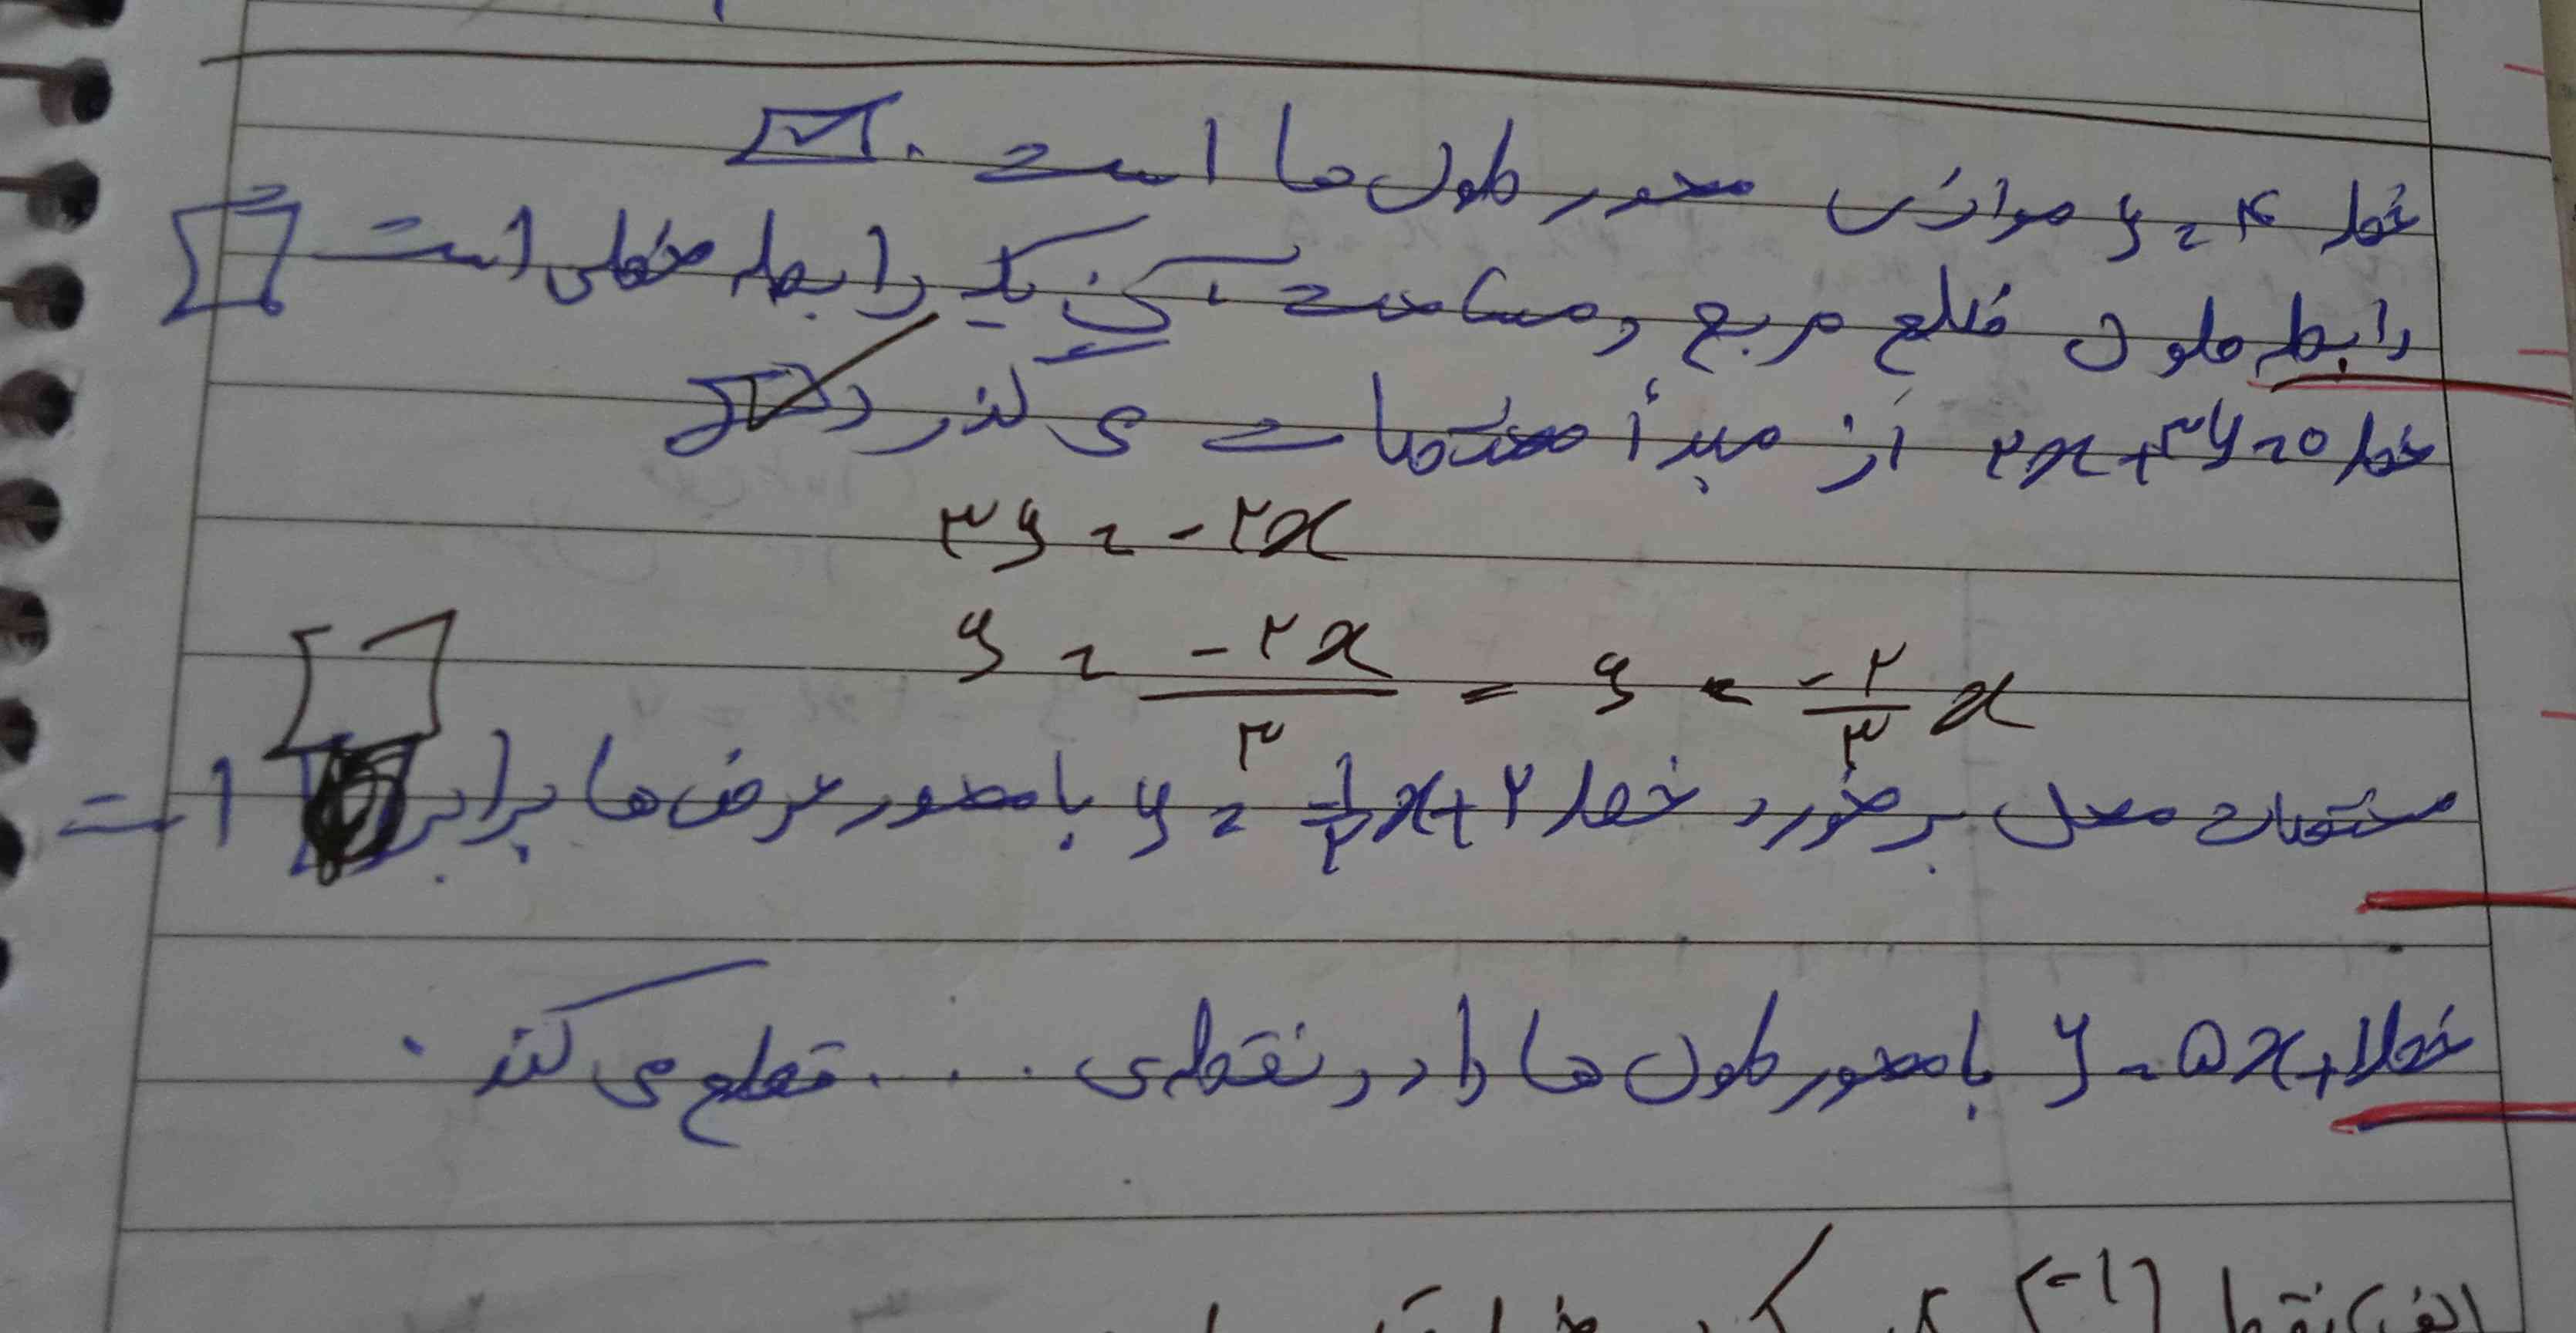 خط y = ۴ موازی محور طول ها است .
رابطه طول ضلع مربع و مساحت آن یک رابطه خطی است
خط ۲x + ۳y = ۰ از مبدأ مختصات می گذرد
۳y = -۲x
y = -۲x/۳ = y = -۲/۳ x
مختصات محل برخورد خط y = ۱/۲x + ۲ با محور عرض ها برابر است
خط y = ۵x + ۱ با محور طول ها را در نقطه ی .... قطع می کند .